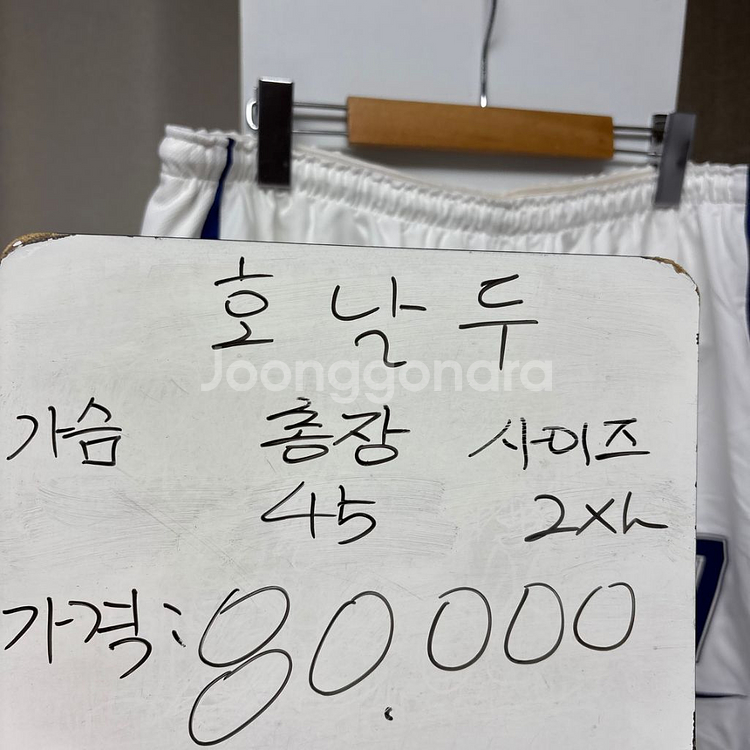 호날두
Joonggonara
가슴 총장 사이즈
45 2XL
가격: 80.000
7